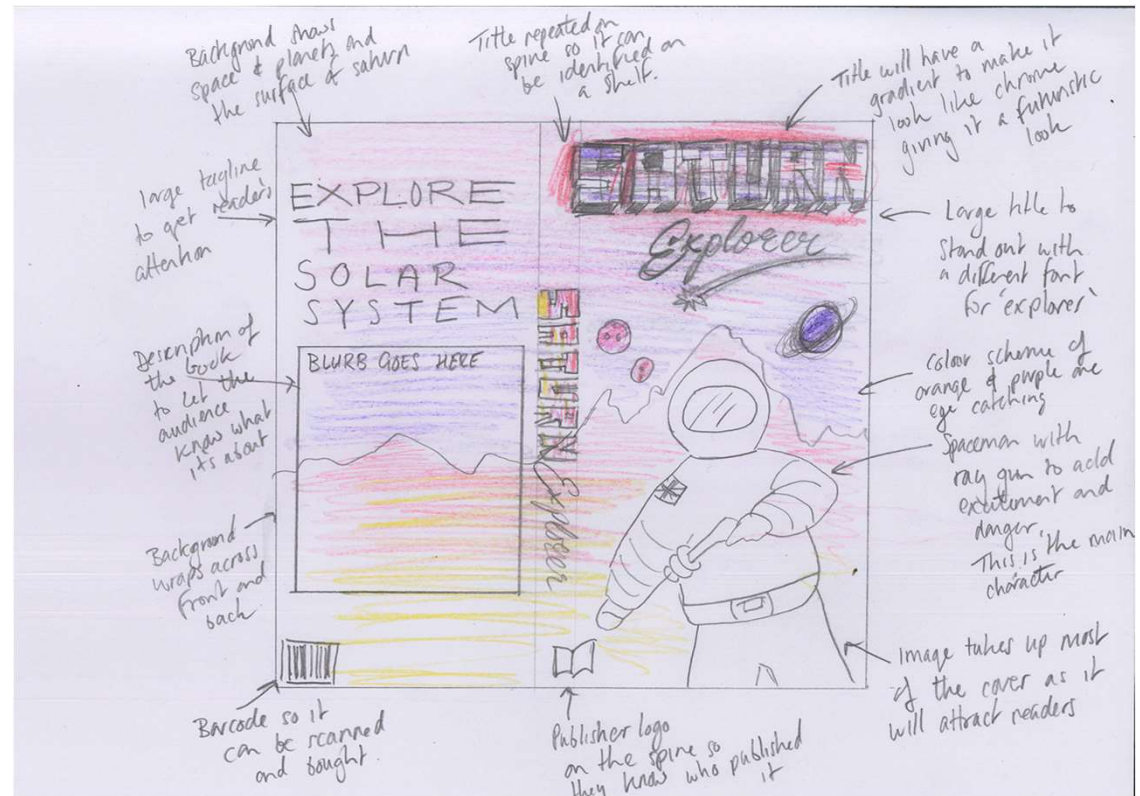 Background shows
space & planets and
the surface of saturn
Title repeated on
spine so it can
be identified on
a shelf.
Title will have a
gradient to make it
look like chrome
giving it a futuristic
look
large tagline
to get readers
attention
EXPLORE
THE
SOLAR
SYSTEM
SATURN
Explorer
Large title to
stand out with
a different font
for 'explorer'
Description of
the book
to let the
audience
know what
it's about
BLURB GOES HERE
SATURN Explorer
colour scheme of
orange & purple are
eye catching
Spaceman with
ray gun to add
excitement and
danger.
This is the main
character
Background
wraps across
front and
back
Image takes up most
of the cover as it
will attract readers
Barcode so it
can be scanned
and bought.
Publisher logo
on the spine so
they know who published
it